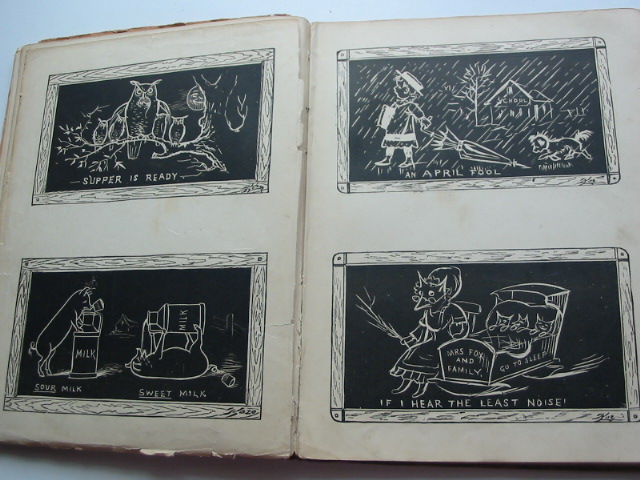 SUPPER IS READY
MILK
MILK
SOUR MILK
SWEET MILK
SCHOOL
AN APRIL FOOL
MRS. FOX
AND
FAMILY.
GO TO SLEEP
IF I HEAR THE LEAST NOISE!